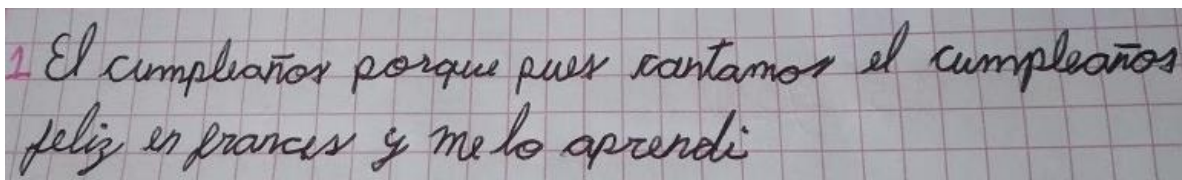 1 El cumpleaños porque pues cantamos el cumpleaños
feliz en frances y me lo aprendi